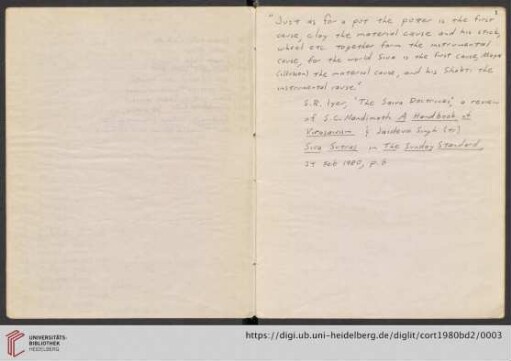 "Just as for a pot the potter is the first
cause, clay the material cause and his stick,
wheel etc. together form the instrumental
cause, for the world Siva is the first cause, Maya
(illusion) the material cause, and his Shakti the
instrumental cause."
S.R. Iyer, 'The Saiva Doctrines', a review
of S.C. Nandimath A Handbook of
Virasaivism & Jaideva Singh (tr)
Siva Sutras in The Sunday Standard,
24 Feb 1980, p. 8
UNIVERSITÄTS-
BIBLIOTHEK
HEIDELBERG
https://digi.ub.uni-heidelberg.de/diglit/cort1980bd2/0003